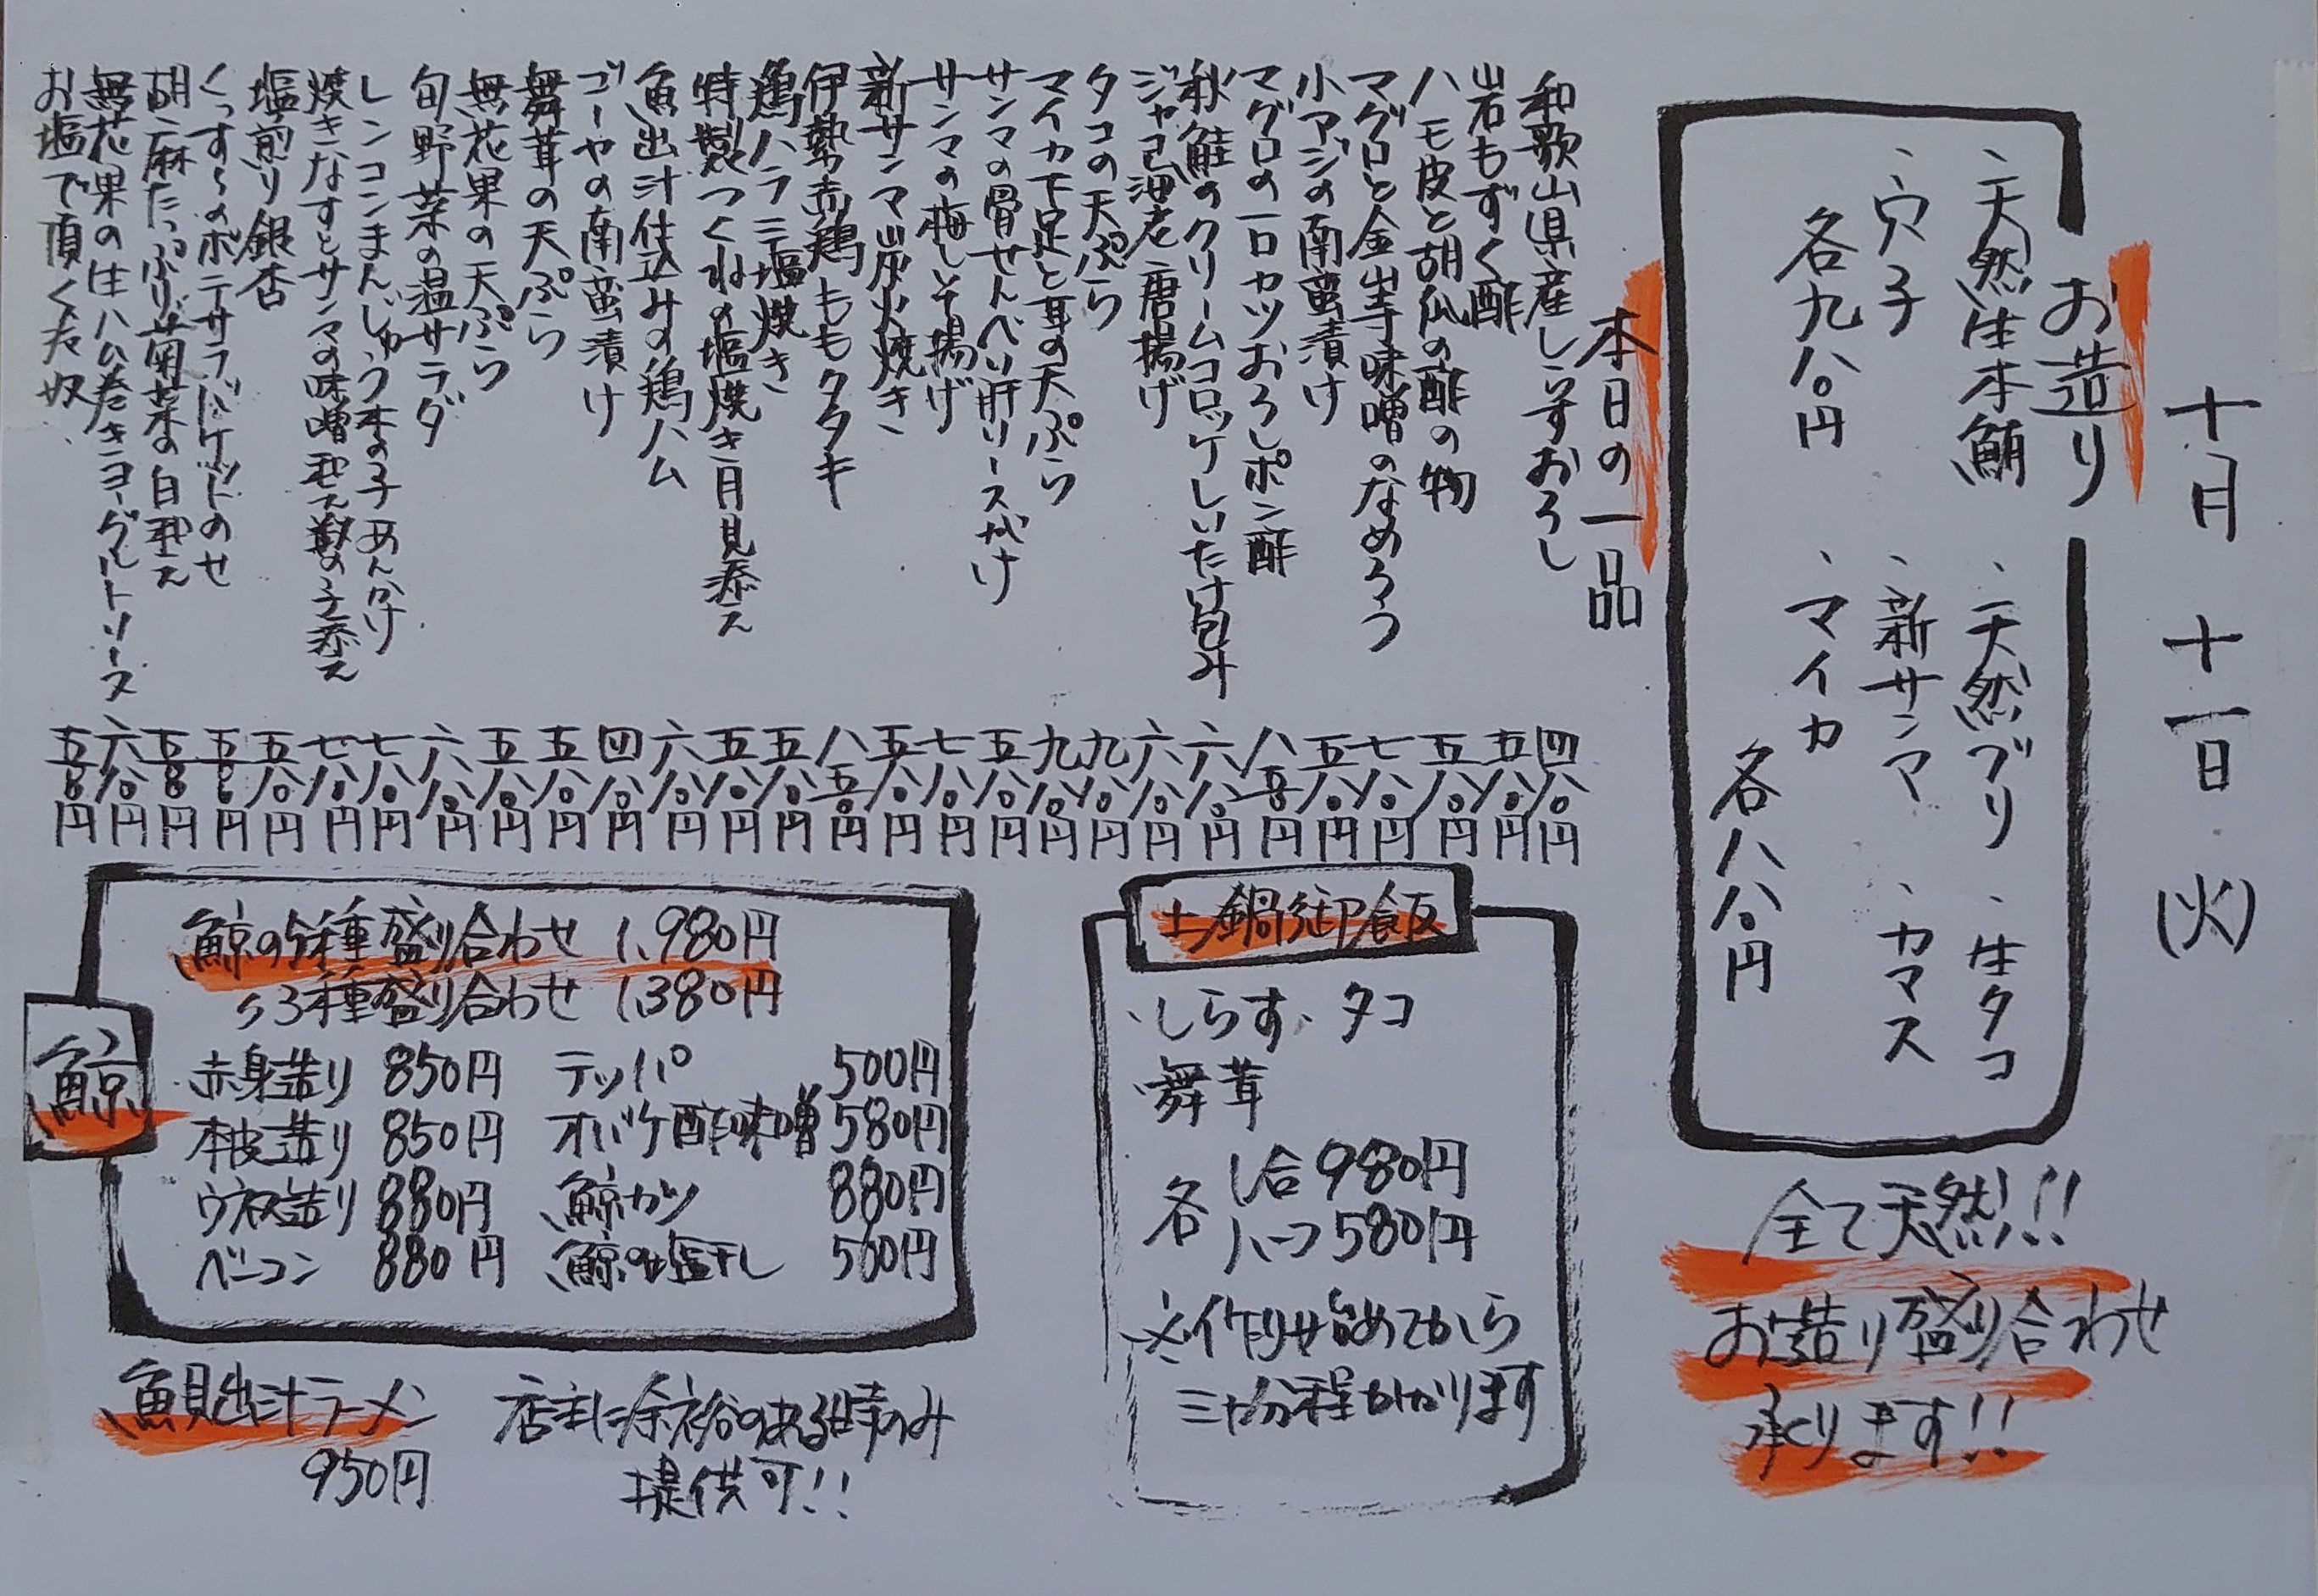 十月十一日(火)
お造り
、天然生本鮪 、天然ブリ 、生タコ
、穴子 、新サンマ 、カマス
各九八〇円 、マイカ
各八八〇円
全て天然!!
お造り盛り合わせ
承ります!!
本日の一品
和歌山県産しらすおろし 四八〇円
岩もずく酢 五八〇円
ハモ皮と胡瓜の酢の物 五八〇円
マグロと金山寺味噌のなめろう 七八〇円
小アジの南蛮漬け 五八〇円
マグロの一口カツおろしポン酢 八五〇円
秋鮭のクリームコロッケしいたけ包み 六八〇円
ジャコ海老唐揚げ 六八〇円
タコの天ぷら 九八〇円
マイカ下足と耳の天ぷら 九八〇円
サンマの骨せんべい肝ソースがけ 五八〇円
サンマの梅しそ揚げ 七八〇円
新サンマ炭火焼き 五八〇円
伊勢赤鶏ももタタキ 八五〇円
鶏ハラミ塩焼き 五八〇円
特製つくねの塩焼き月見添え 五八〇円
魚出汁仕込みの鶏ハム 六八〇円
ゴーヤの南蛮漬け 四八〇円
舞茸の天ぷら 五八〇円
無花果の天ぷら 五八〇円
旬野菜の温サラダ 六八〇円
レンコンまんじゅう木の子あんかけ 七八〇円
焼きなすとサンマの味噌和え数の子添え 七八〇円
塩煎り銀杏 五八〇円
くっすんのポテサラバケットのせ 五五〇円
胡麻たっぷり菊菜の白和え 五八〇円
無花果の生ハム巻きヨーグルトソース 六八〇円
お塩で頂く冷奴 五八〇円
土鍋御飯
・しらす・タコ
・舞茸
各 1合980円
ハーフ580円
※作り始めてから
三十分程かかります
鯨
鯨の5種盛り合わせ 1,980円
〃3種盛り合わせ 1,380円
赤身造り 850円 テッパ 500円
本皮造り 850円 オバケ酢味噌 580円
ウネ造り 880円 鯨カツ 880円
ベーコン 880円 鯨の塩干し 500円
魚貝出汁ラーメン
950円
店主に余裕のある時のみ
提供可!!